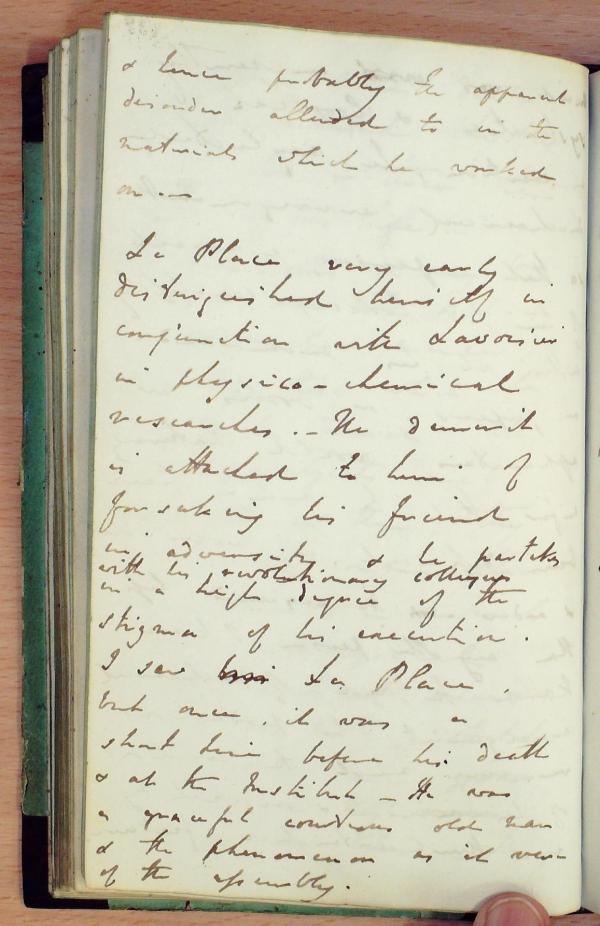 & hence probably the apparent
disorder alluded to in the
materials which he worked
on —
La Place very early
distinguished himself in
conjunction with Lavoisier
in physico-chemical
researches. – The demerit
is attached to him of
forsaking his friend
in adversity & he partakes
with his revolutionary colleagues
in a high degree of the
stigma of his execution.
I saw La Place,
but once, it was a
short time before his death
& at the Institute – He was
a graceful courteous old man
& the phenomenon as it were
of the assembly.